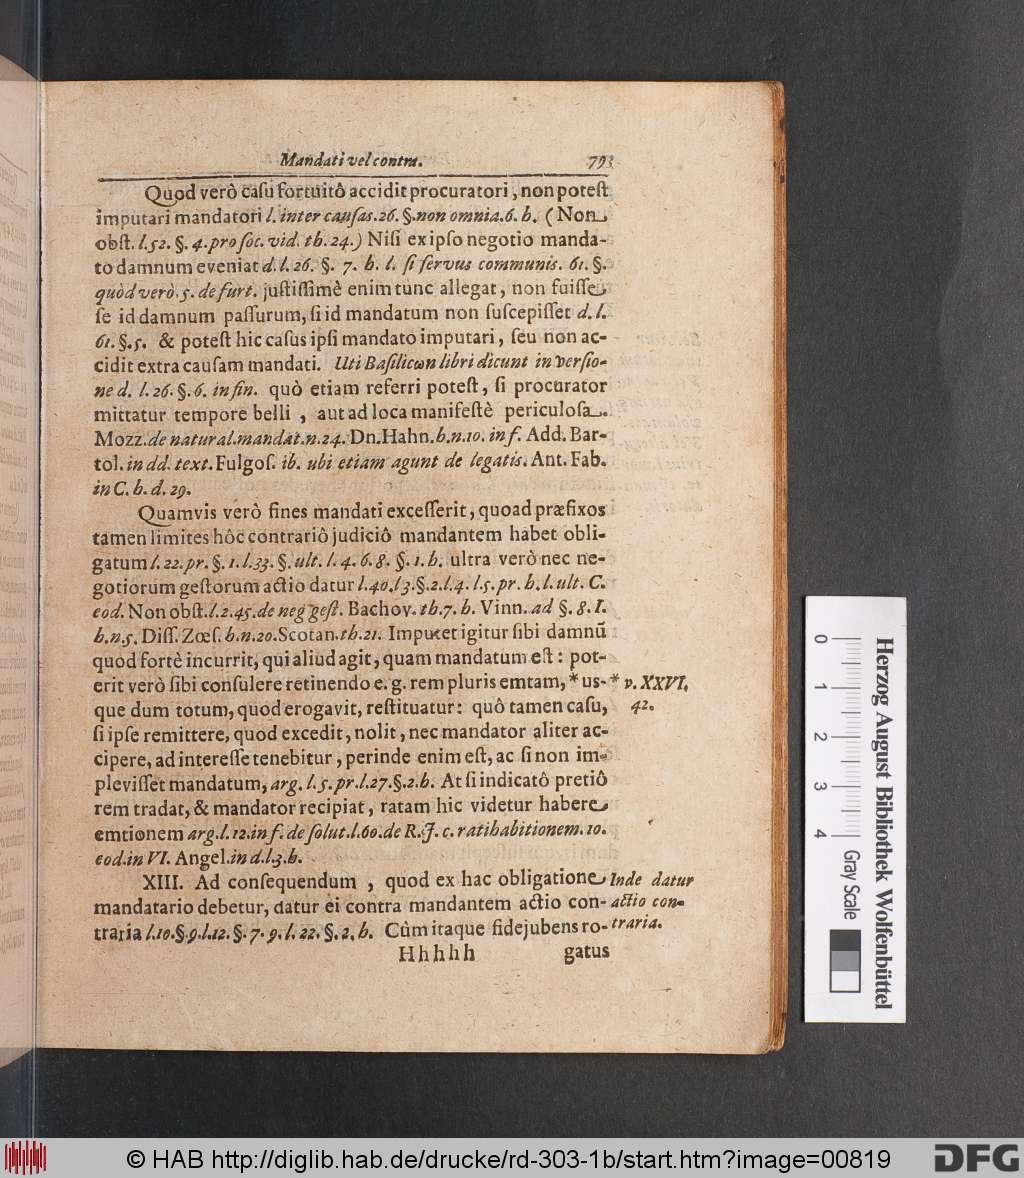 Mandati vel contra. 793
Quod verò caſu fortuitô accidit procuratori, non poteſt
imputari mandatori l. inter cauſas. 26. §. non omnia. 6. h. (Non
obſt. l. 52. §. 4. pro ſoc. vid. th. 24.) Niſi ex ipſo negotio manda-
to damnum eveniat d. l. 26. §. 7. h. l. ſi ſervus communis. 61. §.
quòd verò. 5. de furt. juſtiſſimè enim tunc allegat, non fuiſſe
ſe id damnum paſſurum, ſi id mandatum non ſuſcepiſſet d. l.
61. §. 5. & poteſt hic caſus ipſi mandato imputari, ſeu non ac-
cidit extra cauſam mandati. Uti Baſilicωn libri dicunt in verſio-
ne d. l. 26. §. 6. in fin. quò etiam referri poteſt, ſi procurator
mittatur tempore belli, aut ad loca manifeſtè periculoſa.
Mozz. de natural. mandat. n. 24. Dn. Hahn. h. n. 10. in f. Add. Bar-
tol. in dd. text. Fulgoſ. ib. ubi etiam agunt de legatis. Ant. Fab.
in C. h. d. 29.
Quamvis verò fines mandati exceſſerit, quoad præfixos
tamen limites hôc contrariô judiciô mandantem habet obli-
gatum l. 22. pr. §. 1. l. 33. §. ult. l. 4. 6. 8. §. 1. h. ultra verò nec ne-
gotiorum geſtorum actio datur l. 40. l 3. §. 2. l. 4. l. 5. pr. h. l. ult. C.
eod. Non obſt. l. 2. 45. de neg geſt. Bachov. th. 7. h. Vinn. ad §. 8. I.
h. n. 5. Diſſ. Zœſ. h. n. 20. Scotan. th. 21. Imputet igitur ſibi damnũ
quod fortè incurrit, qui aliud agit, quam mandatum eſt: pot-
erit verò ſibi conſulere retinendo e. g. rem pluris emtam, * us- * v. XXVI.
que dum totum, quod erogavit, reſtituatur: quô tamen caſu, 42.
ſi ipſe remittere, quod excedit, nolit, nec mandator aliter ac-
cipere, ad intereſſe tenebitur, perinde enim eſt, ac ſi non im-
pleviſſet mandatum, arg. l. 5. pr. l. 27. §. 2. h. At ſi indicatô pretiô
rem tradat, & mandator recipiat, ratam hic videtur habere
emtionem arg. l. 12. in f. de ſolut. l. 60. de R. J. c. ratihabitionem. 10.
eod. in VI. Angel. in d. l. 3. h.
XIII. Ad conſequendum, quod ex hac obligatione Inde datur
mandatario debetur, datur ei contra mandantem actio con- actio con-
traria l. 10. §. 9. l. 12. §. 7. 9. l. 22. §. 2. h. Cùm itaque fidejubens ro- traria.
Hhhhh gatus
0 1 2 3 4
Gray Scale
Herzog August Bibliothek Wolfenbüttel
© HAB http://diglib.hab.de/drucke/rd-303-1b/start.htm?image=00819
DFG